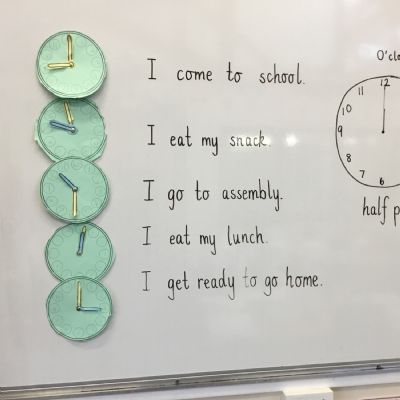 I come to school.
I eat my snack.
I go to assembly.
I eat my lunch.
I get ready to go home.
O'clo
12
11
10
9
8
7
6
half p